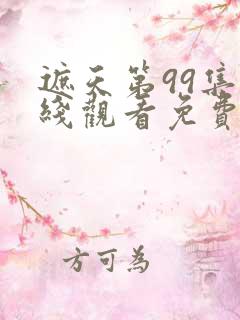 遮天第99集
綫觀看免費
方可為